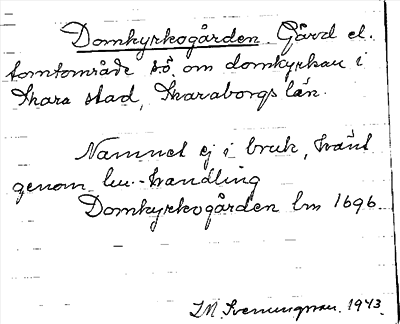 Domkyrkogården. Gård el.
tomtområde s.ö. om domkyrkan i
Skara stad, Skaraborgs län.
Namnet ej i bruk, känt
genom lm.-handling
Domkyrkogården lm 1696.
I.M. Svenungsson. 1943.